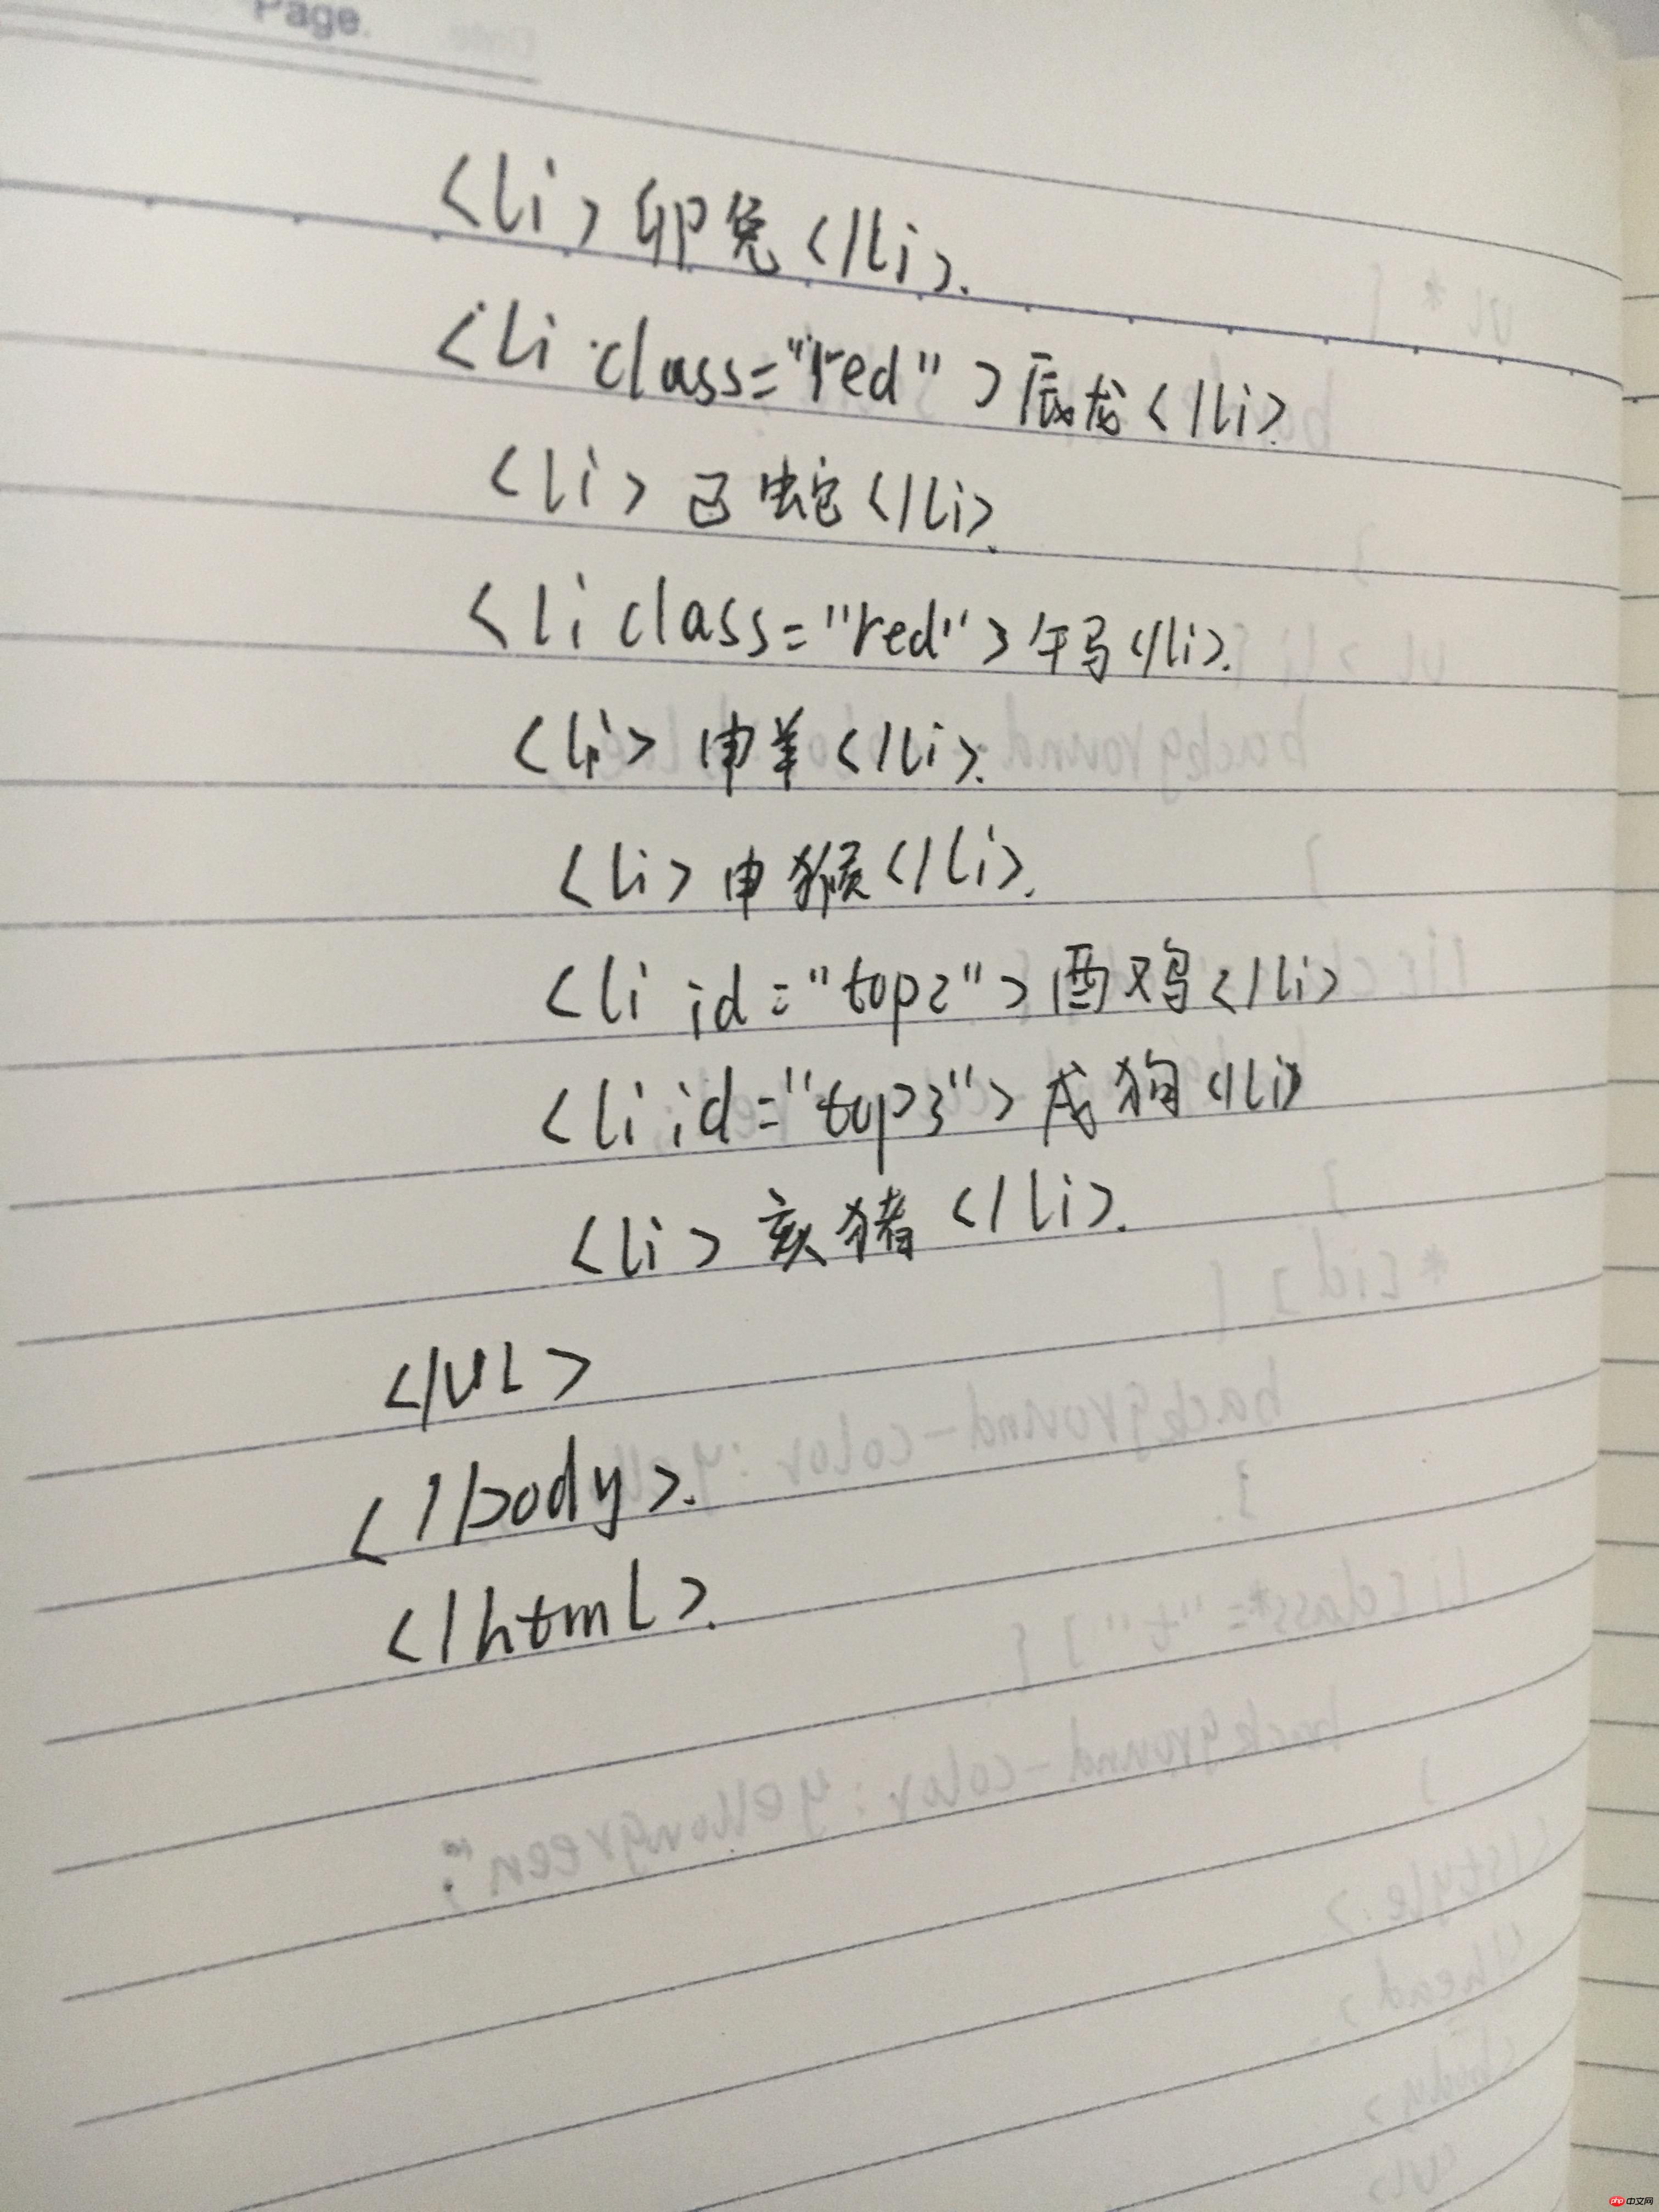 Page.
<li>卯兔</li>.
<li class="red">辰龙</li>.
<li>巳蛇</li>.
<li class="red">午马</li>.
<li>申羊</li>.
<li>申猴</li>.
<li id="top2">酉鸡</li>
<li id="top3">戌狗</li>
<li>亥猪</li>.
</ul>
</body>.
</html>.
php 中文网